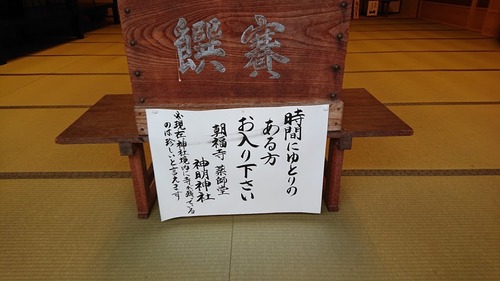 賽饌
時間にゆとりの
ある方
お入り下さい
朝福寺 薬師堂
神明神社
※現在神社境内に寺が残っている
のは珍しいと言えます